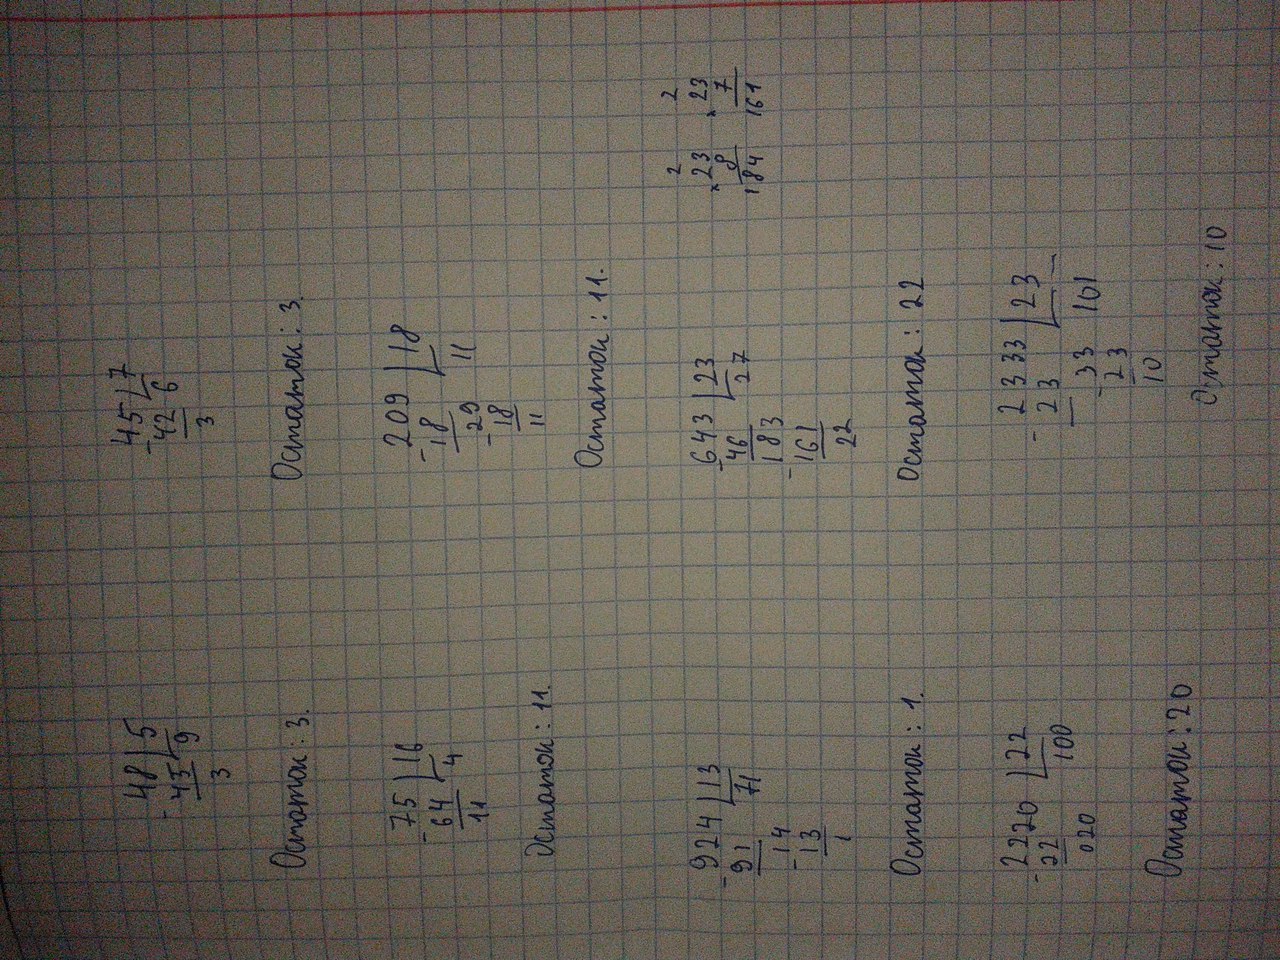 - 48 | 5
45 | 9
3
Остаток: 3.
- 45 | 7
42 | 6
3
Остаток: 3.
- 75 | 16
64 | 4
11
Остаток: 11.
- 209 | 18
18 | 11
- 29
18
11
Остаток: 11.
- 924 | 13
91 | 71
- 14
13
1
Остаток: 1.
- 643 | 23
46 | 27
- 183
161
22
Остаток: 22
2
× 23
8
184
2
× 23
7
161
- 2220 | 22
22 | 100
020
Остаток: 20
- 2333 | 23
23 | 101
- 33
23
10
Остаток: 10